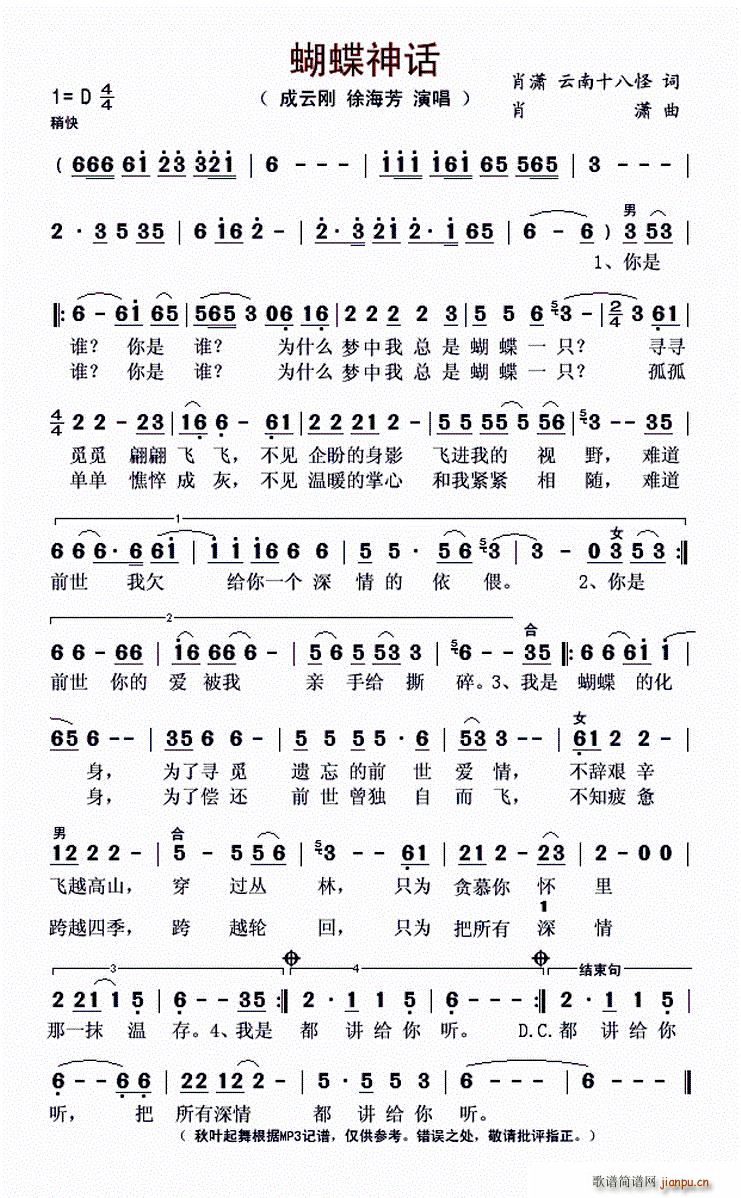 蝴蝶神话
1= D 4/4
（ 成云刚 徐海芳 演唱 ）
肖潇 云南十八怪 词
肖 潇 曲
稍快
( 666 61 23 321 | 6 - - - | 111 161 65 565 | 3 - - - |
男
2 · 3 5 35 | 6 16 2 - | 2· 321 2· 1 65 | 6 - 6 ) 3 53 |
1、你是
‖: 6 - 61 65 | 565 3 06 16 | 2 2 2 2 3 | 5 5 6 3 - | 2/4 3 61 |
谁？ 你是 谁？ 为什么 梦中我 总 是 蝴 蝶 一 只？ 寻寻
谁？ 你是 谁？ 为什么 梦中我 总 是 蝴 蝶 一 只？ 孤孤
4/4 2 2 - 23 | 16 6 - 61 | 2 2 21 2 - | 5 5 55 5 56 | 3 - - 35 |
觅觅 翩翩 飞 飞， 不见 企盼的身影 飞进我的 视 野， 难道
单单 憔悴 成 灰， 不见 温暖的掌心 和我紧紧 相 随， 难道
1
女
6 6 6· 6 61 | 1 1 16 6 6 | 5 5· 5 6 3 | 3 - 0 3 5 3 :‖
前世 我欠 给你一个 深 情 的 依 偎。 2、你是
2
合
6 6 - 66 | 16 66 6 - | 5 5 53 3 3 | 6 - - 35 |‖: 6 6 61 1
前世 你的 爱 被我 亲 手给 撕 碎。3、我是 蝴蝶 的化
女
65 6 - - | 35 6 6 6 | 5 5 55 · 6 | 53 3 - - | 61 2 2 - |
身， 为了寻 觅 遗 忘的前 世 爱 情， 不辞艰 辛
身， 为了偿 还 前 世曾独 自 而 飞， 不知疲 惫
男 合
12 2 2 - | 5 - 5 56 | 3 - - 61 | 21 2 - 23 | 2 - 0 0 |
飞越高山， 穿 过丛 林， 只为 贪慕你 怀 里
1
跨越四季， 跨 越轮 回， 只为 把所有 深 情
3 4 结束句
2 21 1 5 | 6 - - 35 :‖ 2 · 1 1 5 | 6 - - - :‖ 2 · 1 1 5 |
那一抹 温 存。4、我是 都 讲 给 你 听。 D.C.都 讲 给 你
6 - - 6 6 | 22 12 2 - | 2 · 3 3 5 | 6 - - - | 6 - - - ‖
听， 把 所有深情 都 讲 给 你 听。
（ 秋叶起舞根据MP3记谱，仅供参考。错误之处，敬请批评指正。）
歌谱简谱网
jianpu.cn